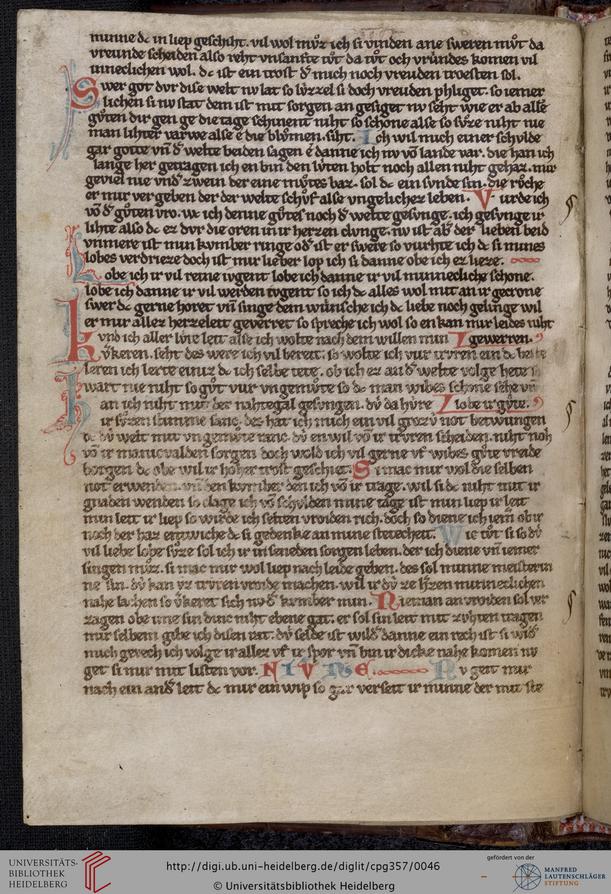 minne dc in liep geschiht. vil wol mvͦz ich si vinden ane sweren mvͦt da
vreunde scheiden also reht vnsanfte tvͦt da tvͦt och vrúndes komen vil
inneclichen wol. dc ist ein trost dˢ mich noch vreuden troesten sol.
Swer got dvr dise welt nv lat so lvzzel si doch vreuden phliget. so iemer
lichen si nv stat dem ist mit sorgen an gesiget nv seht wie er ab alle
gvͦten dir gen ge die tage schinent niht so schone alse so svͤze niht nie
man lihter varwe alse ê die blvͦmen siht. Ich wil mich einer schvlde
gar gotte vñ dˢ welte beiden sagen ê danne ich nv võ lande var. die han ich
lange her getragen ich en bin den lvten holt noch allen niht gehaz. mir
geviel nie vndˢ zwein der eine mvͦtes baz. sol dc ein svnde sin. die rvͦche
er mir vergeben der der welte schvͦf alse vngelichez leben. Vvrde ich
võ dˢ gvͦten vro. we ich denne gvͦtes noch dˢ welte gesvnge. ich gesvnge ir
lihte also dc ez dvr die oren in ir herzen clvnge. nv ist abˢ der lieben beid
vnmere ist min kvmber ringe odˢ ist er swere so vurhte ich dc si mines
lobes verdrieze doch ist mir lieber lop ich si danne obe ich ez lieze.
Lobe ich ir vil reine tvgent lobe ich danne ir vil minnecliche schone.
lobe ich danne ir vil werden tvgent so ich dc alles wol mit an ir gecrone
swer dc gerne horet vñ singe dem wúnsche ich dc liebe noch gelinge wil
er mir allez herzeleit geverret so spreche ich wol so en kan mir leides niht
kvnd ich aller lvte leit alse ich wolte nach dem willen min gewerren.
kvͤkeren. seht des were ich vil bereit. so wolte ich vúr trvren ein dc beste
leren ich lerte einúz dc ich selbe tete. ob ich ez an dˢ welte volge hete
wart nie niht so gvͦt vúr vngemvͤte so dc man wibes schone sehe vñ
an ich niht mit der nahtegal gesvngen. dv da húre lobe ir gvͤte.
ir svͤzen stimme sanc. des hat mich ein vil grozv not betwungen
dc dv welt mit vngemvͤte ranc. dv en wil võ ir trvren scheiden. niht noh
võ ir manicvalden sorgen doch wold ich vil gerne vf wibes gvͤte vreide
borgen dc obe wil ir hoher trost geschiet. Si mac mir wol die selben
not erwenden. vñ den kvmber den ich võ ir trage. wil si dc niht mit ir
gnaden wenden so clage ich võ schvlden mine tage ist min liep ir leit
min leit ir liep so wirde ich selten vroiden rich. doch so diene ich iem̃ ob ir
noch der haz entwiche dc si gedenke an mine stetecheit. Wie tvͦt si so dv
vil liebe lobe svͤze sol ich ir in seneden sorgen leben. der ich diene vñ iemer
singen mvͦz. si mac mir wol liep nach leide geben. des sol minne meisterin
ne sin. dv kan vz trvren vroide machen. wil ir dv ze herzen minneclichen
nahe lachen so vͤkeret sich nv dˢ kvmber min. Nieman an vroiden sol ver
zagen obe ime sin dinc niht ebene gat. er sol sin leit mit zvhten tragen
mir selbem gibe ich disen rat. dv selde ist wildˢ danne ein rech ist si wildˢ
mich gerech ich volge ir allez vf ir spor vñ bin ir dicke nahe komen nv
get si mir mit listen vor. NIVNE. Nv geit mir
nach ein andˢ leit dc mir ein wip so gar verseit ir minne der mir ste
UNIVERSITÄTS-
BIBLIOTHEK
HEIDELBERG
http://digi.ub.uni-heidelberg.de/diglit/cpg357/0046
© Universitätsbibliothek Heidelberg
gefördert von der
MANFRED
LAUTENSCHLÄGER
STIFTUNG